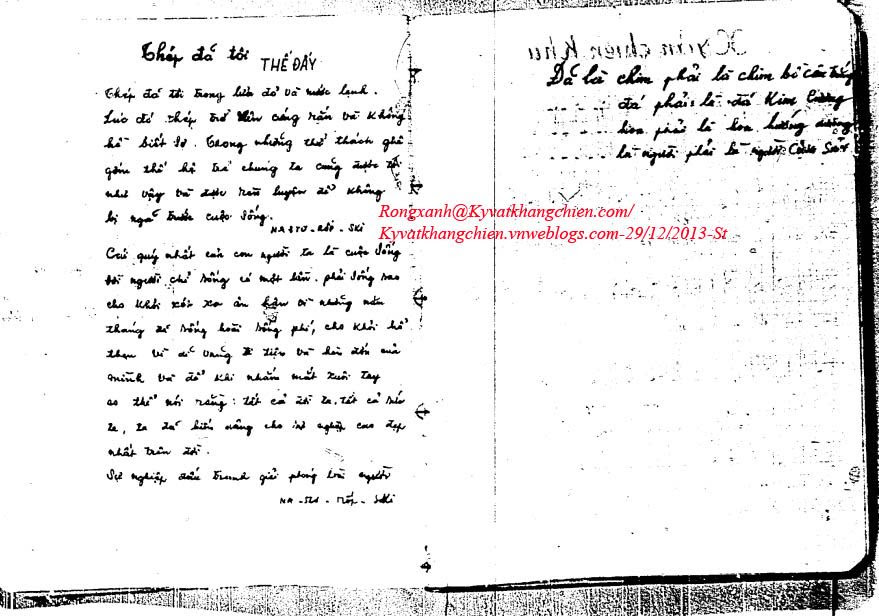 Thép đã tôi THẾ ĐẤY
Thép đã tôi trong lửa đỏ và nước lạnh.
Lúc đó thép trở nên cứng rắn và không
hề biết sợ. Trong những thử thách ghê
gớm thế hệ trẻ chúng ta cũng được tôi
như vậy và được rèn luyện để không
bị ngã trước cuộc sống.
Cái quý nhất của con người ta là cuộc sống
đời người chỉ sống có một lần. phải sống sao
cho khỏi xót xa ân hận vì những năm
tháng đã sống hoài sống phí, cho khỏi hổ
thẹn vì dĩ vãng ti tiện và hèn đớn của
mình và để khi nhắm mắt xuôi tay
có thể nói rằng: tất cả đời ta, tất cả sức
ta, ta đã hiến dâng cho sự nghiệp cao đẹp
nhất trên đời.
Sự nghiệp đấu tranh giải phóng loài người
Đã là chim phải là chim bồ câu trắng
đá phải là đá Kim Cương
hoa phải là hoa hướng dương
là người phải là người Cộng Sản
Rongxanh@Kyvatkhangchien.com/
Kyvatkhangchien.vnweblogs.com-29/12/2013-St